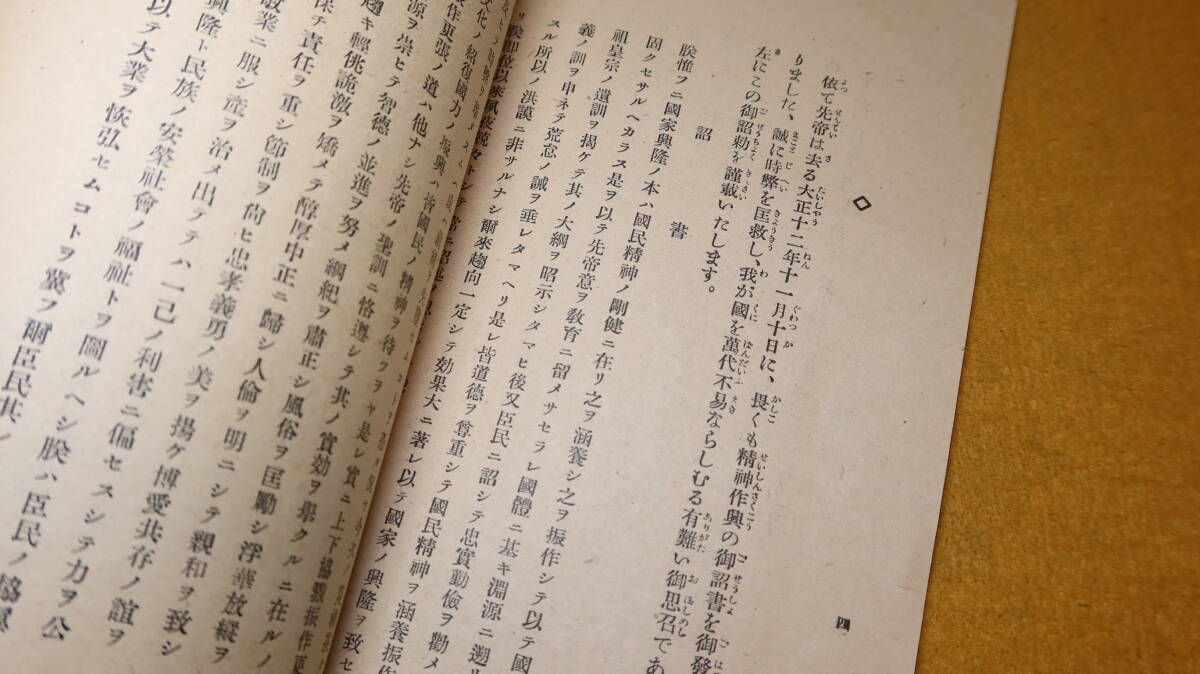 ◇
依て先帝は去る大正十二年十一月十日に、畏くも精神作興の御詔書を御發
りました、誠に時弊を匡救し、我が國を萬代不易ならしむる有難い御思召であ
左にこの御詔勅を謹載いたします。
詔書
朕惟フニ國家興隆ノ本ハ國民精神ノ剛健ニ在リ之ヲ涵養シ之ヲ振作シテ以テ國
固クセサルヘカラス是ヲ以テ先帝意ヲ敎育ニ留メサセラレ國體ニ基キ淵源ニ遡
祖皇宗ノ遺訓ヲ揭ケテ其ノ大綱ヲ昭示シタマヒ後又臣民ニ詔シテ忠實勤儉ヲ勸メ
義ノ訓ヲ申ネテ荒怠ノ誡ヲ垂レタマヘリ是レ皆道德ヲ尊重シテ國民精神ヲ涵養振作
スル所以ノ洪謨ニ非サルナシ爾來趨向一定シテ効果大ニ著レ以テ國家ノ興隆ヲ致セ
リ朕卽位以來夙夜兢々トシテ常ニ紹述
文化ノ紹復國力ノ振興ハ皆國民ノ精神ヲ待ツヲヤ是レ實ニ上下協戮振作更
作更張ノ道ハ他ナシ先帝ノ聖訓ニ恪遵シテ其ノ實効ヲ擧クルニ在ルノ
源ヲ崇ヒテ智德ノ並進ヲ努メ綱紀ヲ肅正シ風俗ヲ匡勵シ浮華放縱ヲ
趨キ輕佻詭激ヲ矯メテ醇厚中正ニ歸シ人倫ヲ明ニシテ親和ヲ致シ
保チ責任ヲ重シ節制ヲ尙ヒ忠孝義勇ノ美ヲ揚ケ博愛共存ノ誼ヲ
敬業ニ服シ產ヲ治メ出テテハ一己ノ利害ニ偏セスシテ力ヲ公
興隆ト民族ノ安榮社會ノ福祉トヲ圖ルヘシ朕ハ臣民ノ協
以テ大業ヲ恢弘セムコトヲ冀フ爾臣民其ノ
2